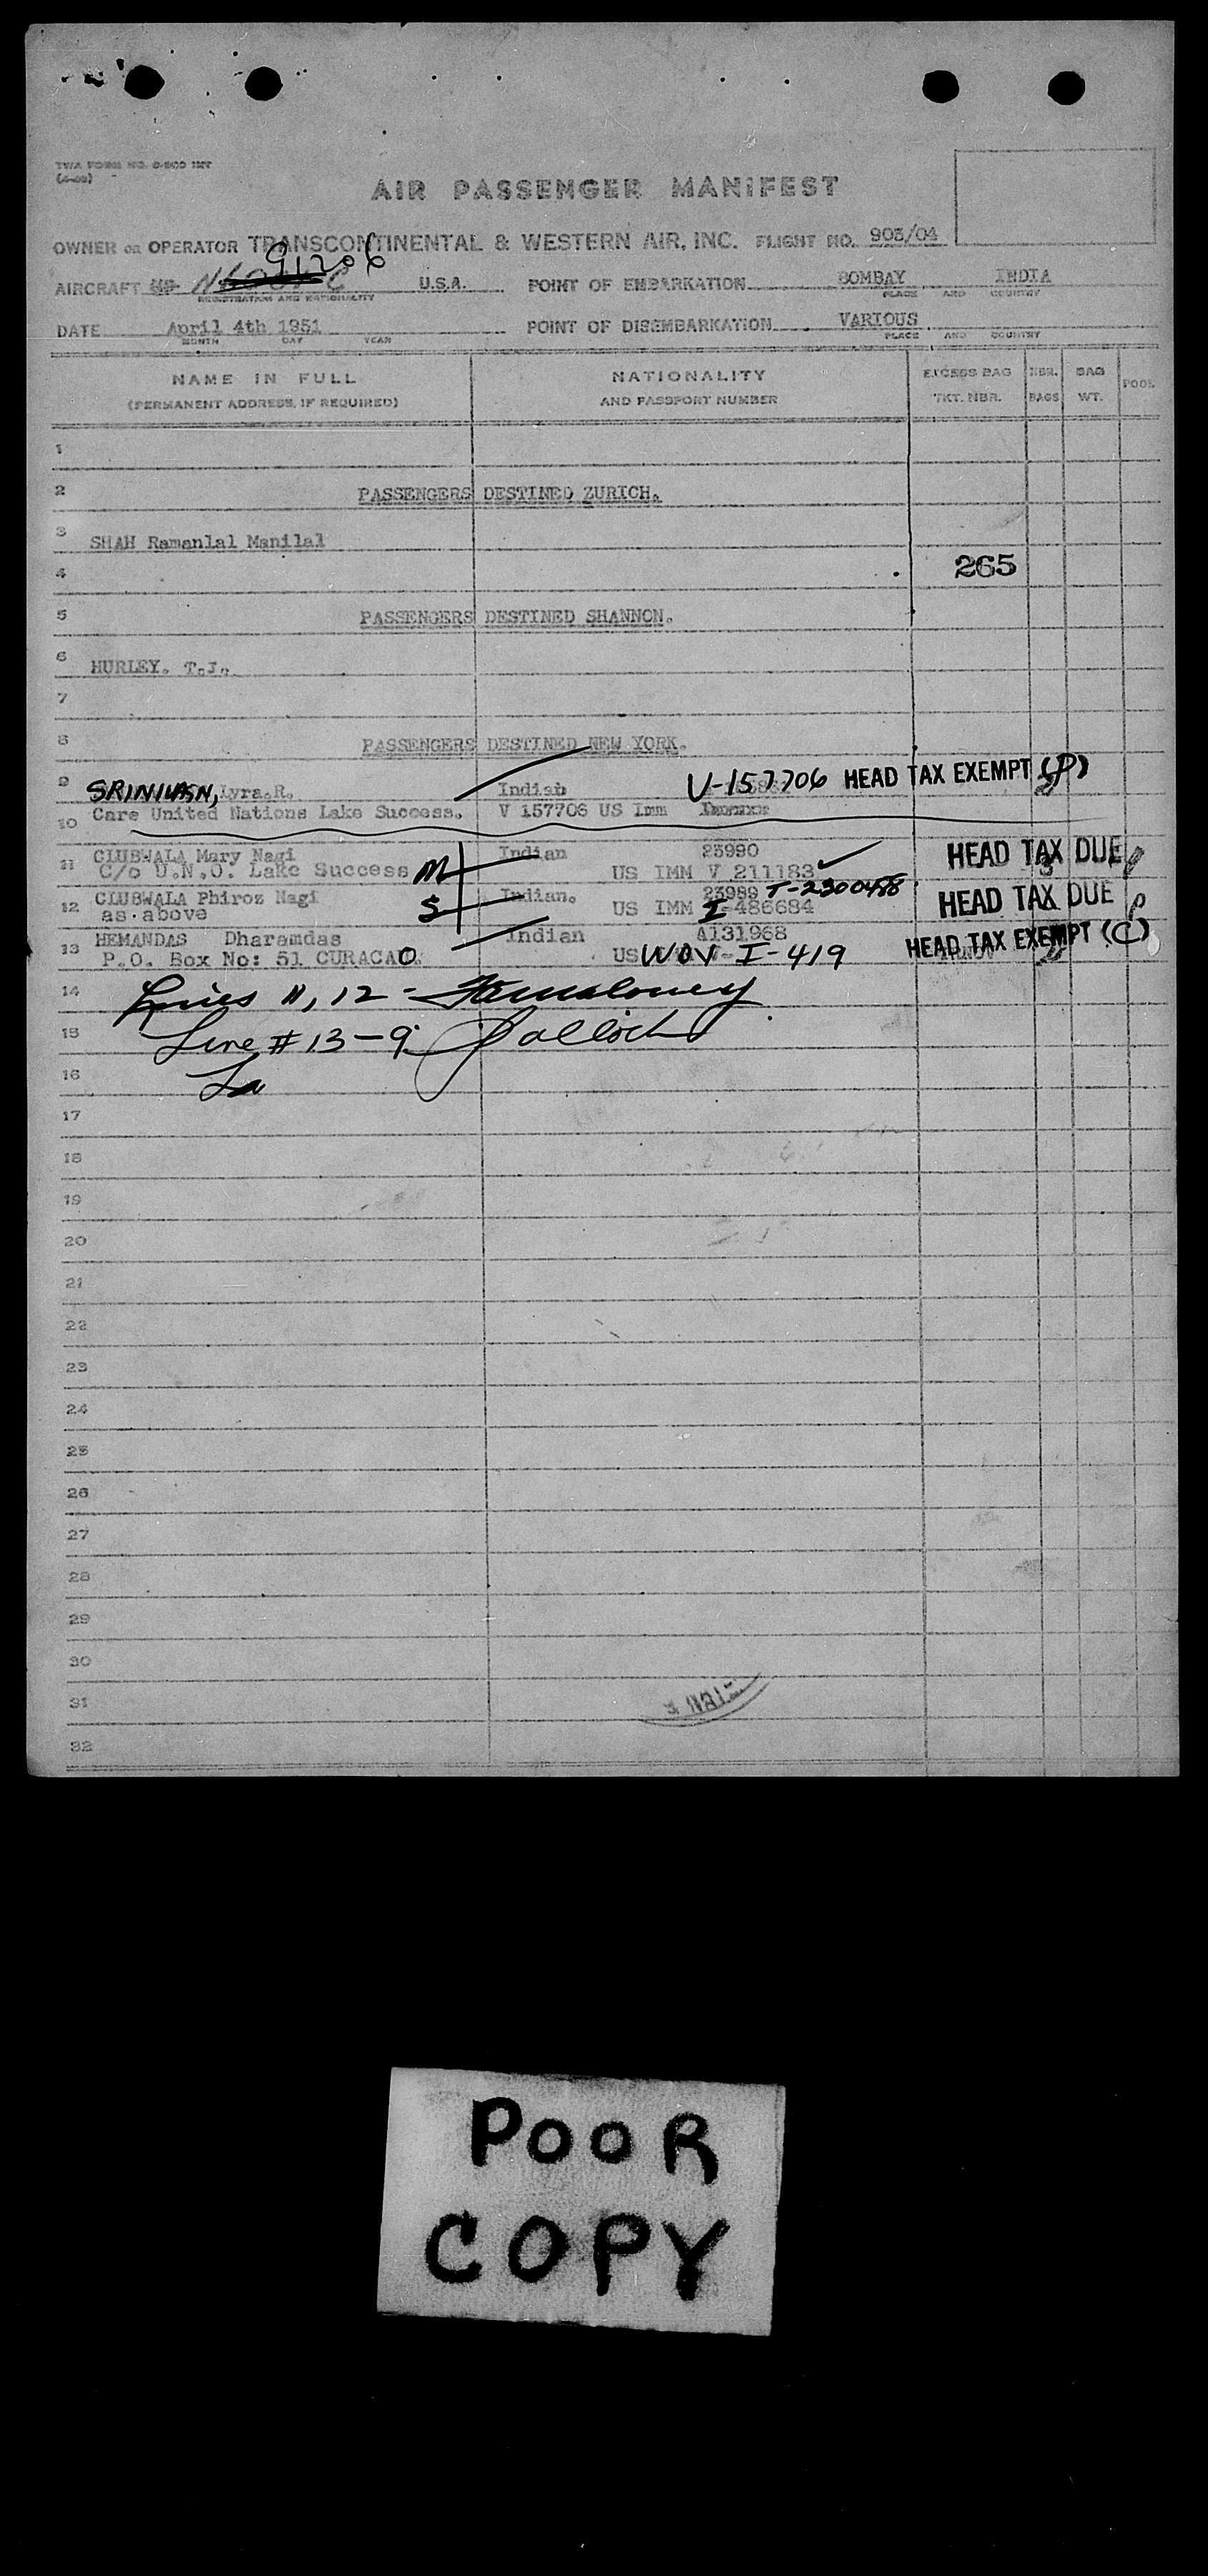 TWA FORM NO.
AIR PASSENGER MANIFEST
OWNER OR OPERATOR TRANSCONTINENTAL & WESTERN AIR, INC. FLIGHT NO. 903/04
91206
AIRCRAFT U.S.A. POINT OF EMBARKATION BOMBAY INDIA
REGISTRATION AND NATIONALITY PLACE AND COUNTRY
DATE April 4th 1951 POINT OF DISEMBARKATION VARIOUS
MONTH DAY YEAR PLACE AND COUNTRY
NAME IN FULL NATIONALITY EXCESS BAG NBR. BAG POOL
(PERMANENT ADDRESS, IF REQUIRED) AND PASSPORT NUMBER TKT. NBR. BAGS WT.
1
2 PASSENGERS DESTINED ZURICH.
3 SHAH Ramanlal Manilal
4 265
5 PASSENGERS DESTINED SHANNON.
6 HURLEY. T.J.
7
8 PASSENGERS DESTINED NEW YORK.
9 Lyra.R. Indian V-157706 HEAD TAX EXEMPT
10 Care United Nations Lake Success. V 157706 US Imm
11 CLUBWALA Mary Nagi Indian 23990 HEAD TAX DUE
C/o U.N.O. Lake Success M US IMM V 211183
12 CLUBWALA Phiroz Nagi S Indian. 23989 HEAD TAX DUE
as above US IMM I-486684
13 HEMANDAS Dharamdas Indian A131968 HEAD TAX EXEMPT (C)
P.O. Box No: 51 CURACAO US I-419
14 Lines 11, 12 -
15 Line # 13-9
16
17
18
19
20
21
22
23
24
25
26
27
28
29
30
31
32
POOR
COPY